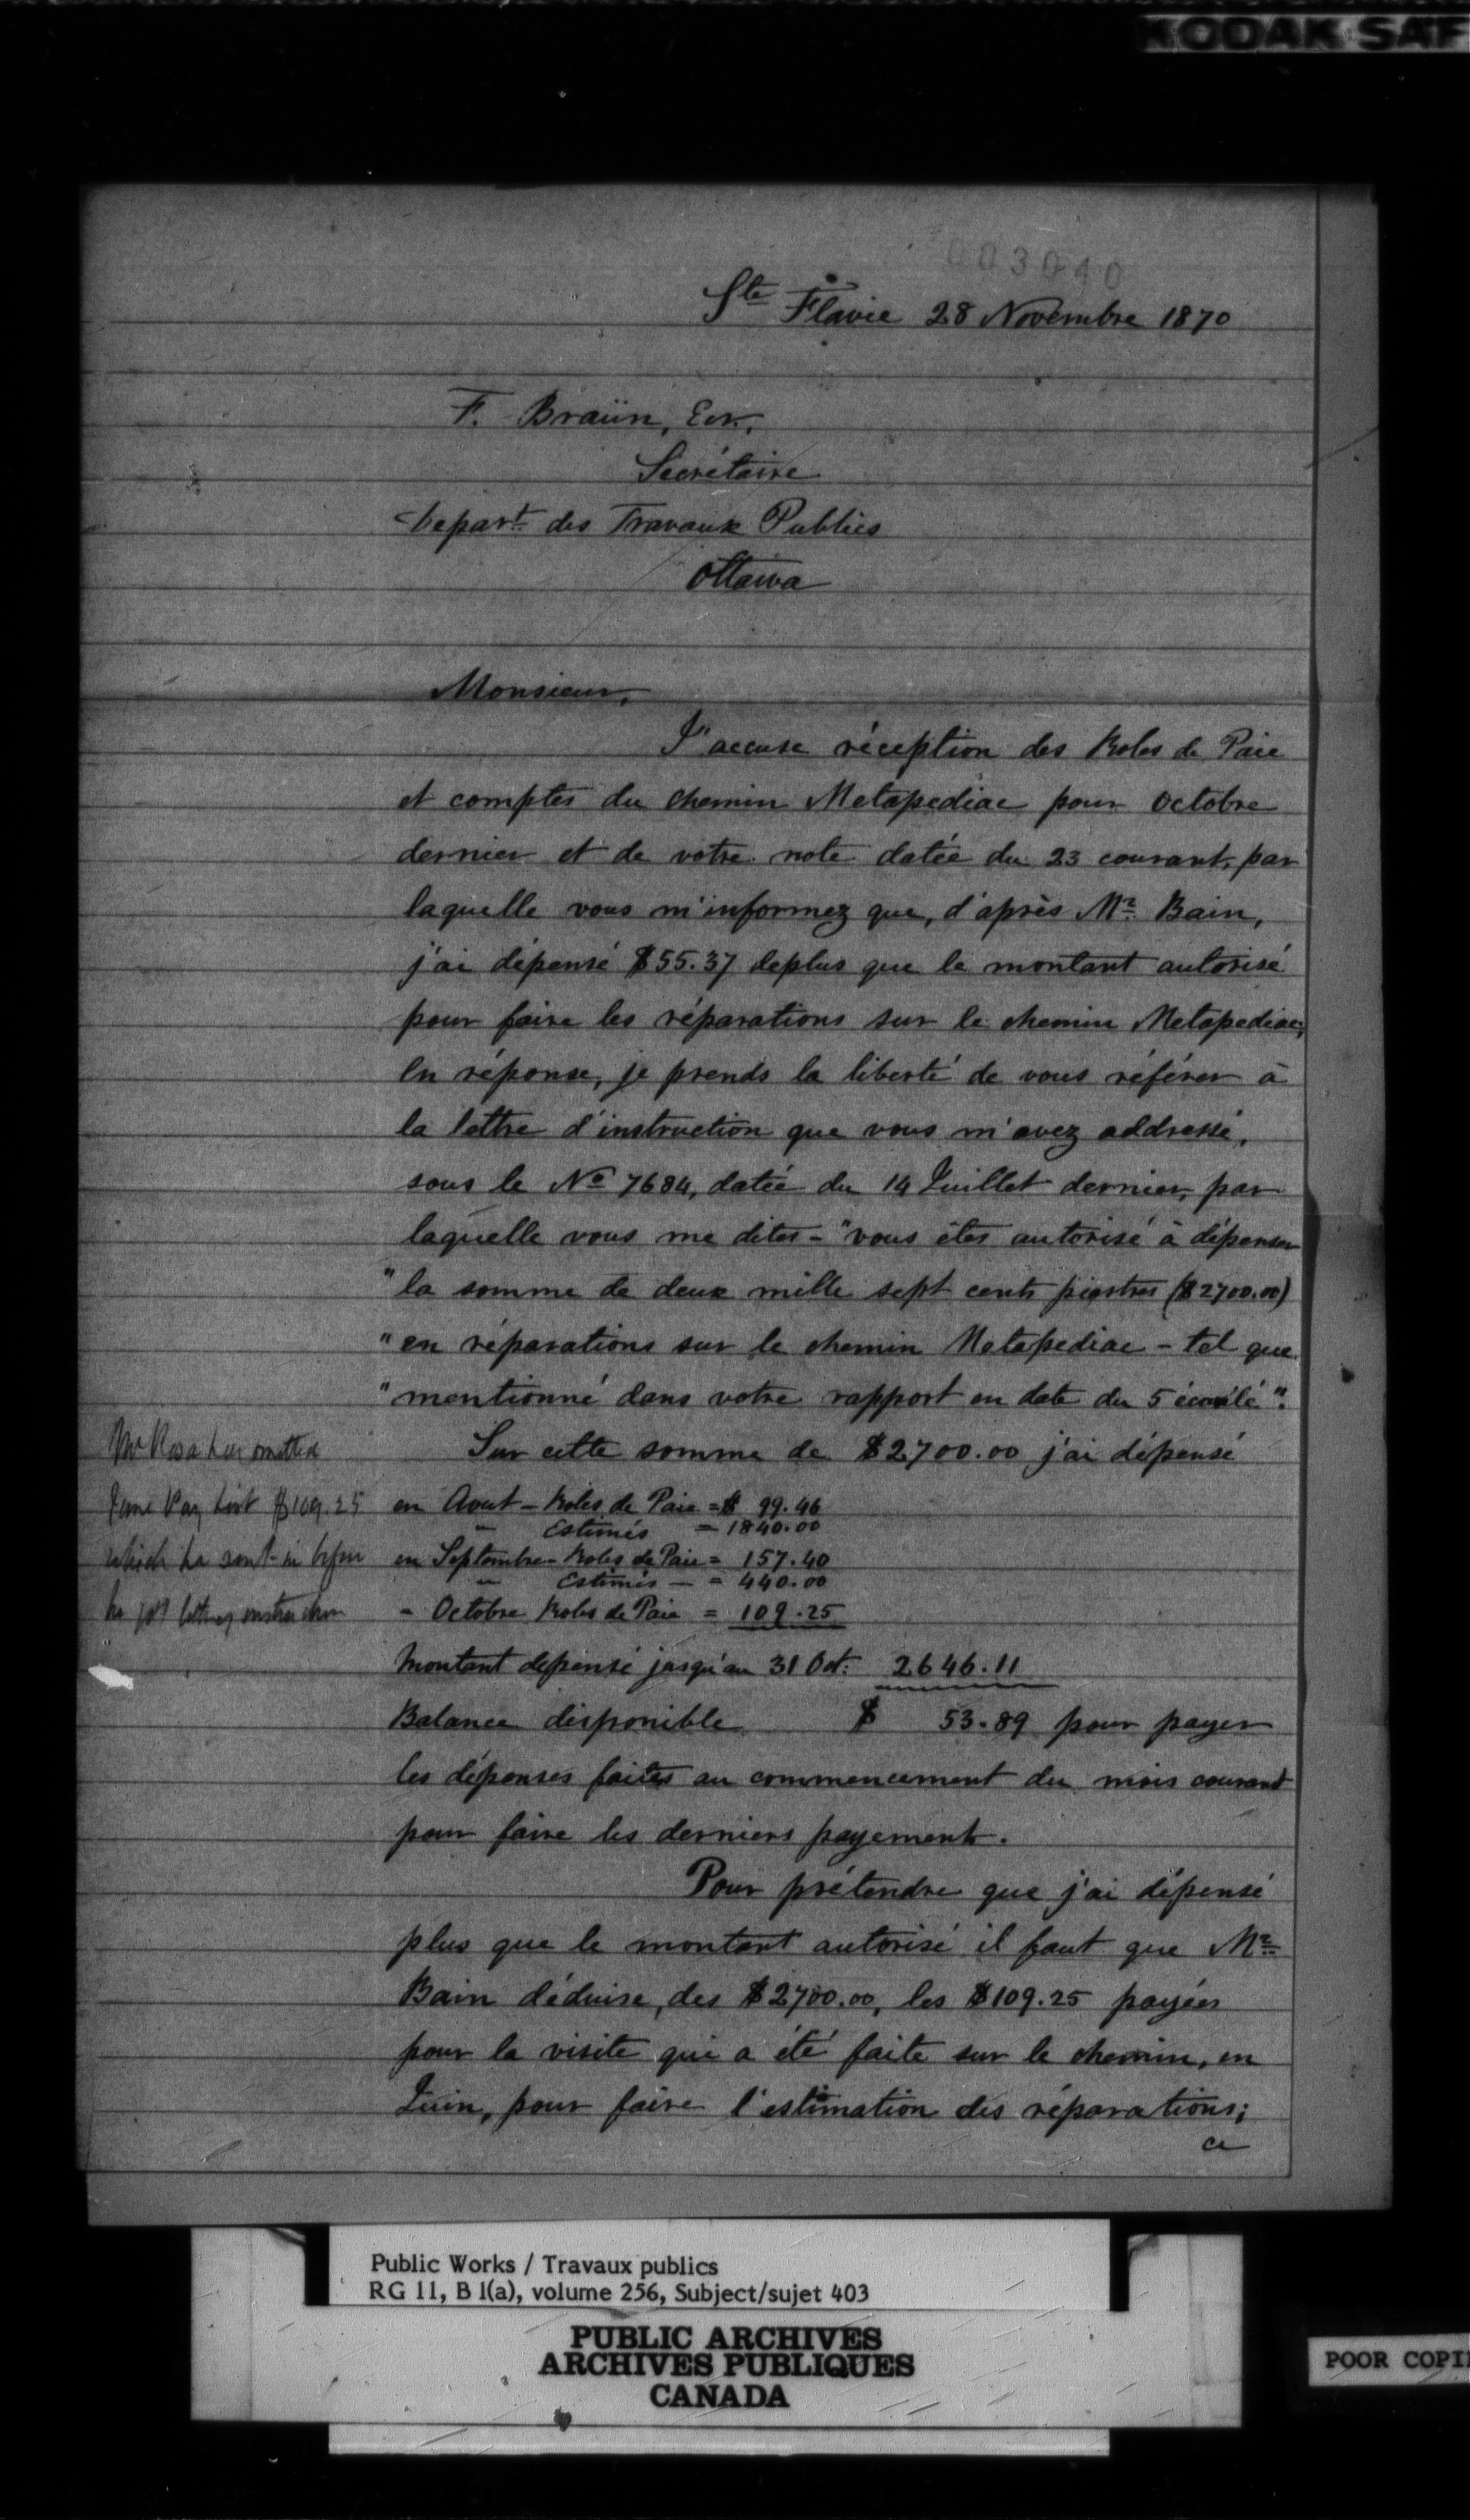 KODAK SAF
003040
Ste Flavie 28 Novembre 1870
F. Braün, Ecr.
Secrétaire
Depart. des Travaux Publics
Ottawa
Monsieur,
J'accuse réception des Roles de Paie
et comptes du chemin Metapediac pour Octobre
dernier et de votre note datée du 23 courant, par
laquelle vous m'informez que, d'après Mr. Bain,
j'ai dépensé $55.37 deplus que le montant autorisé
pour faire les réparations sur le chemin Metapediac;
En réponse, je prends la liberté de vous référer à
la lettre d'instruction que vous m'avez addressé,
sous le No 7684, datée du 14 Juillet dernier, par
laquelle vous me dites - "vous êtes autorisé à dépenser
"la somme de deux mille sept cents piastres ($2700.00)
"en réparations sur le chemin Metapediac - tel que
"mentionné dans votre rapport en date du 5 écoulé".
Sur cette somme de $2700.00 j'ai dépensé
en Aout - Roles de Paie = $ 99.46
" Estimés = 1840.00
en Septembre - Roles de Paie = 157.40
" Estimés - = 440.00
- Octobre Roles de Paie = 109.25
Montant depensé jusqu'au 31 Oct: 2646.11
Balance disponible $ 53.89 pour payer
les dépenses faites au commencement du mois courant
pour faire les derniers payements.
Pour prétendre que j'ai dépensé
plus que le montant autorisé il faut que Mr.
Bain déduise, des $2700.00, les $109.25 payées
pour la visite qui a été faite sur le chemin, en
Juin, pour faire l'estimation des réparations;
ce
Mr Rosa has omitted
June Pay List $109.25
which he sent in before
he got letter of instruction
Public Works / Travaux publics
RG 11, B 1(a), volume 256, Subject/sujet 403
PUBLIC ARCHIVES
ARCHIVES PUBLIQUES
CANADA
POOR COPI